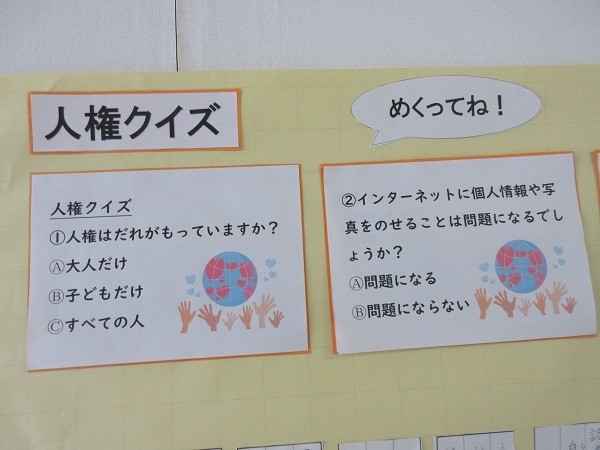 人権クイズ
めくってね！
人権クイズ
①人権はだれがもっていますか？
Ⓐ大人だけ
Ⓑ子どもだけ
Ⓒすべての人
②インターネットに個人情報や写
真をのせることは問題になるでし
ょうか？
Ⓐ問題になる
Ⓑ問題にならない